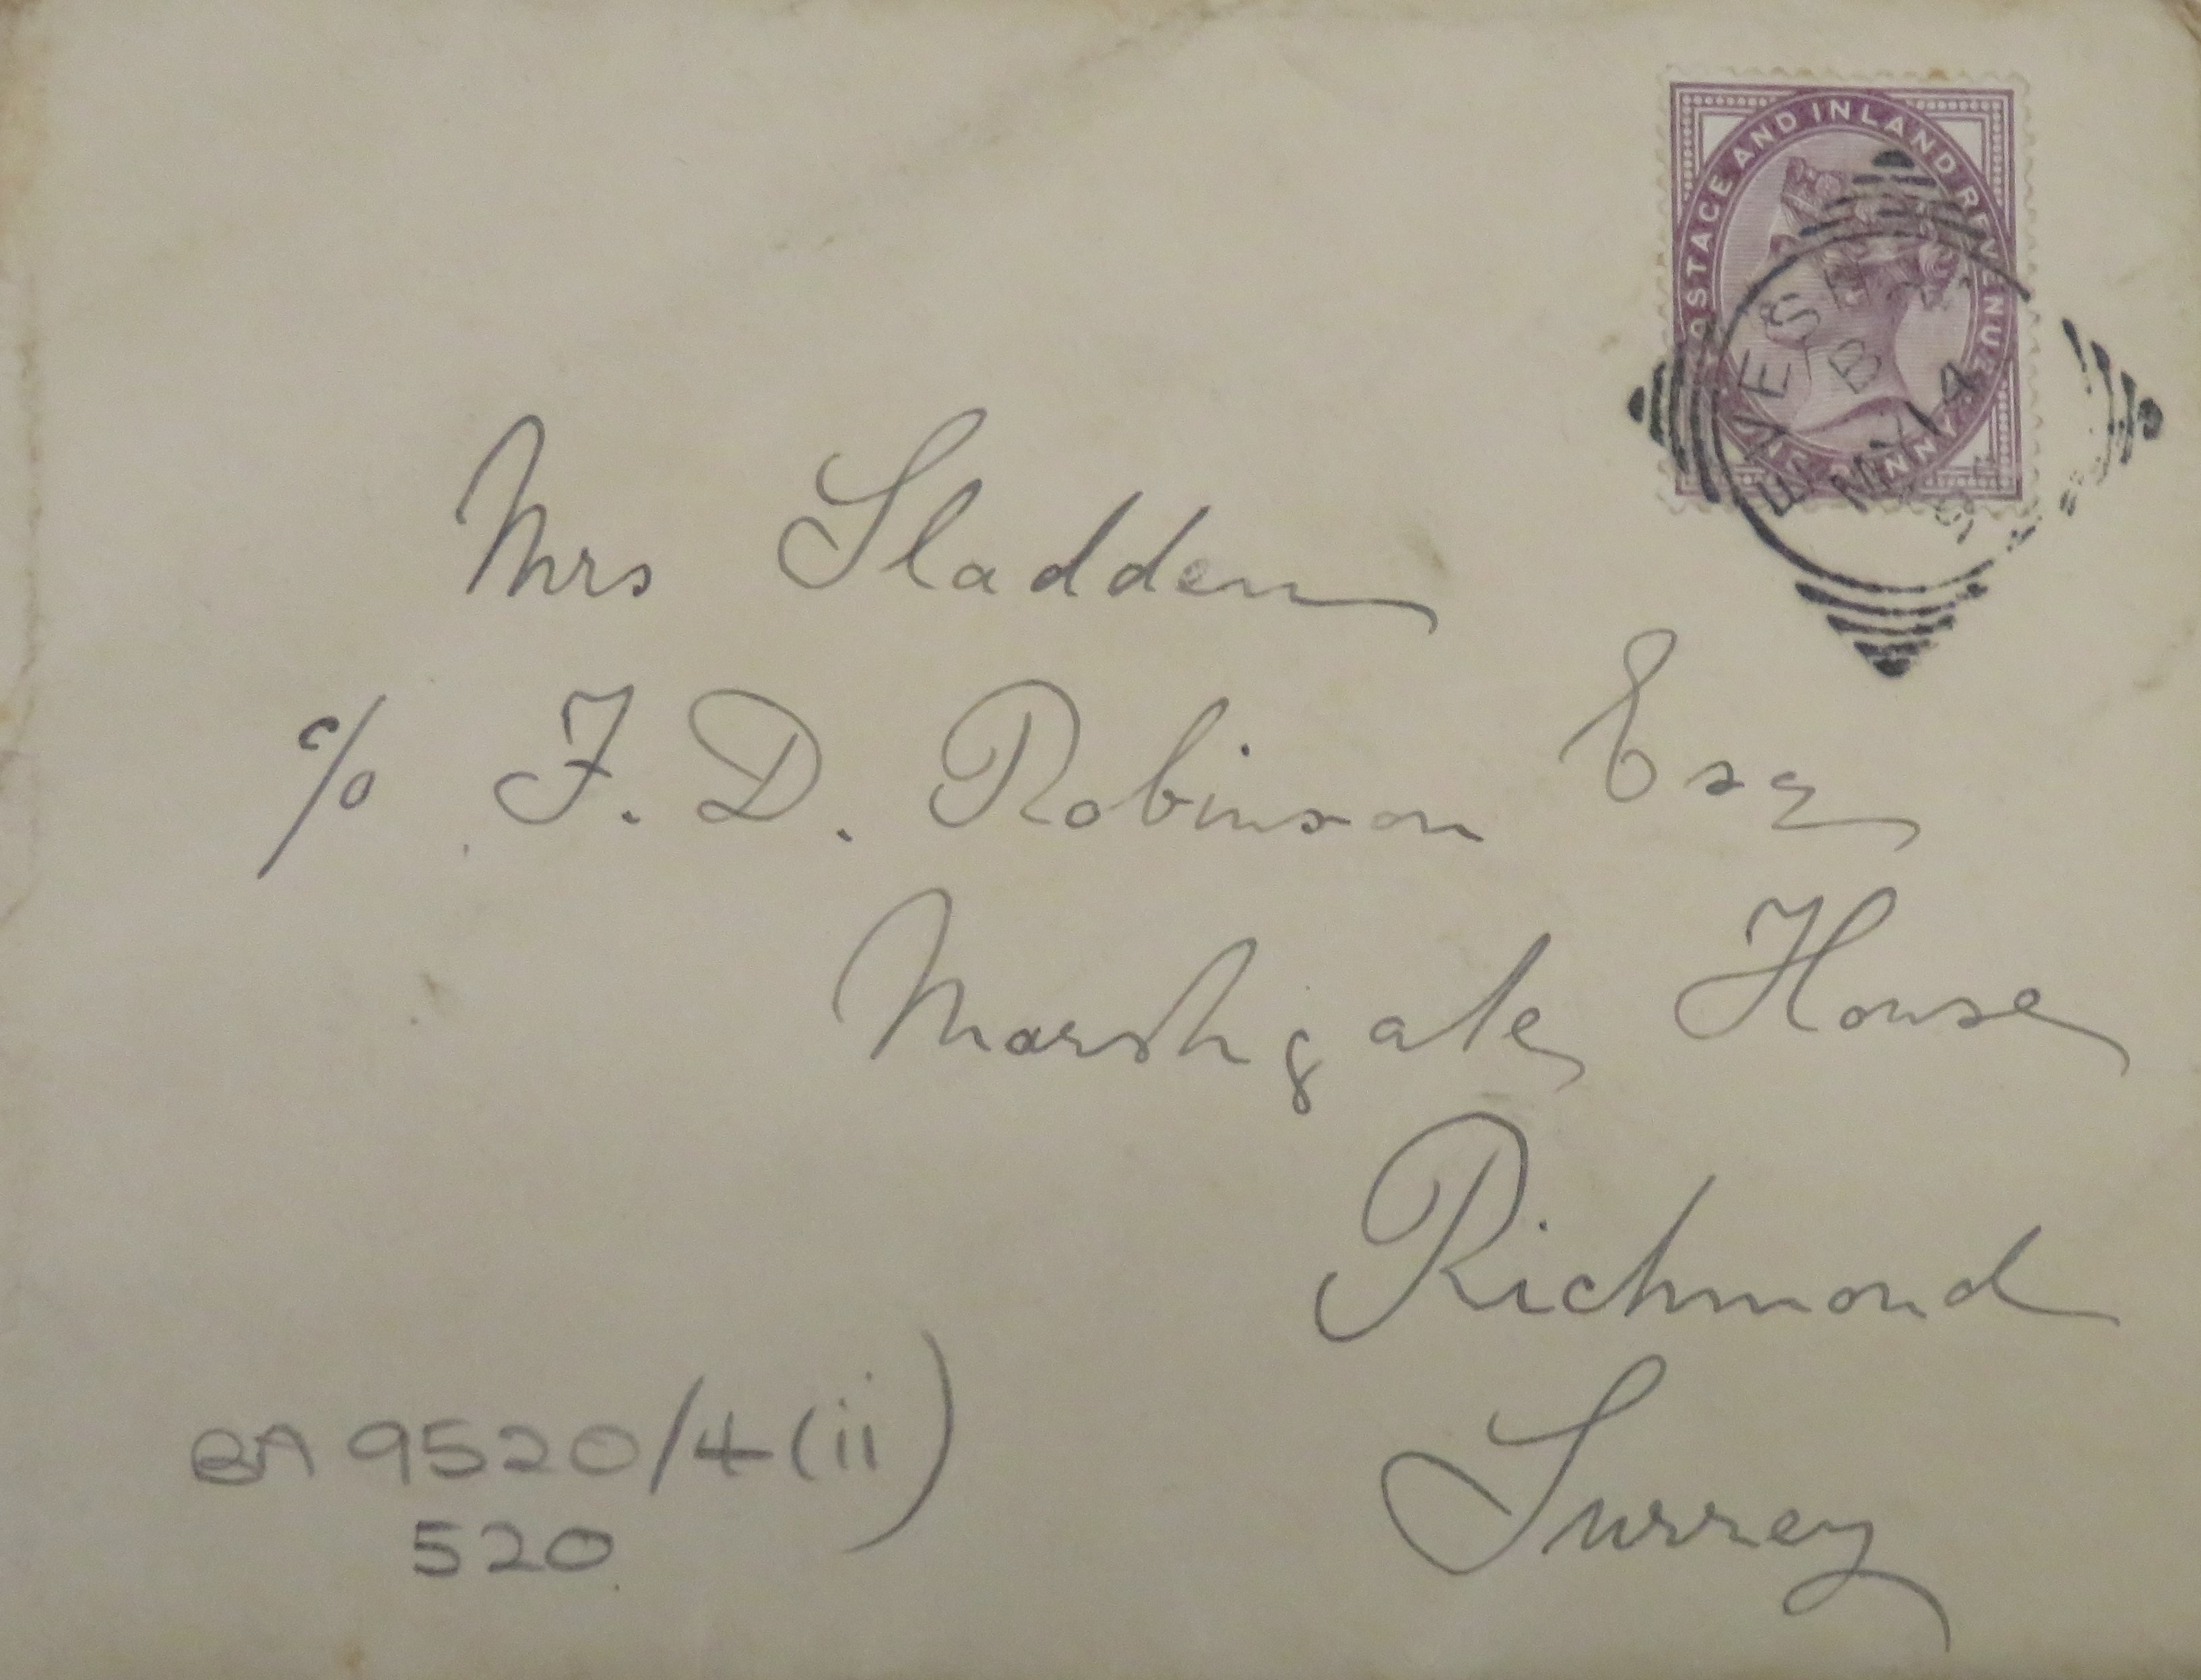 POSTAGE AND INLAND REVENUE
ONE PENNY
B
MY 14
Mrs Sladden
c/o F. D. Robinson Esq
Marshgate House
Richmond
Surrey
BA 9520/4(ii)
520